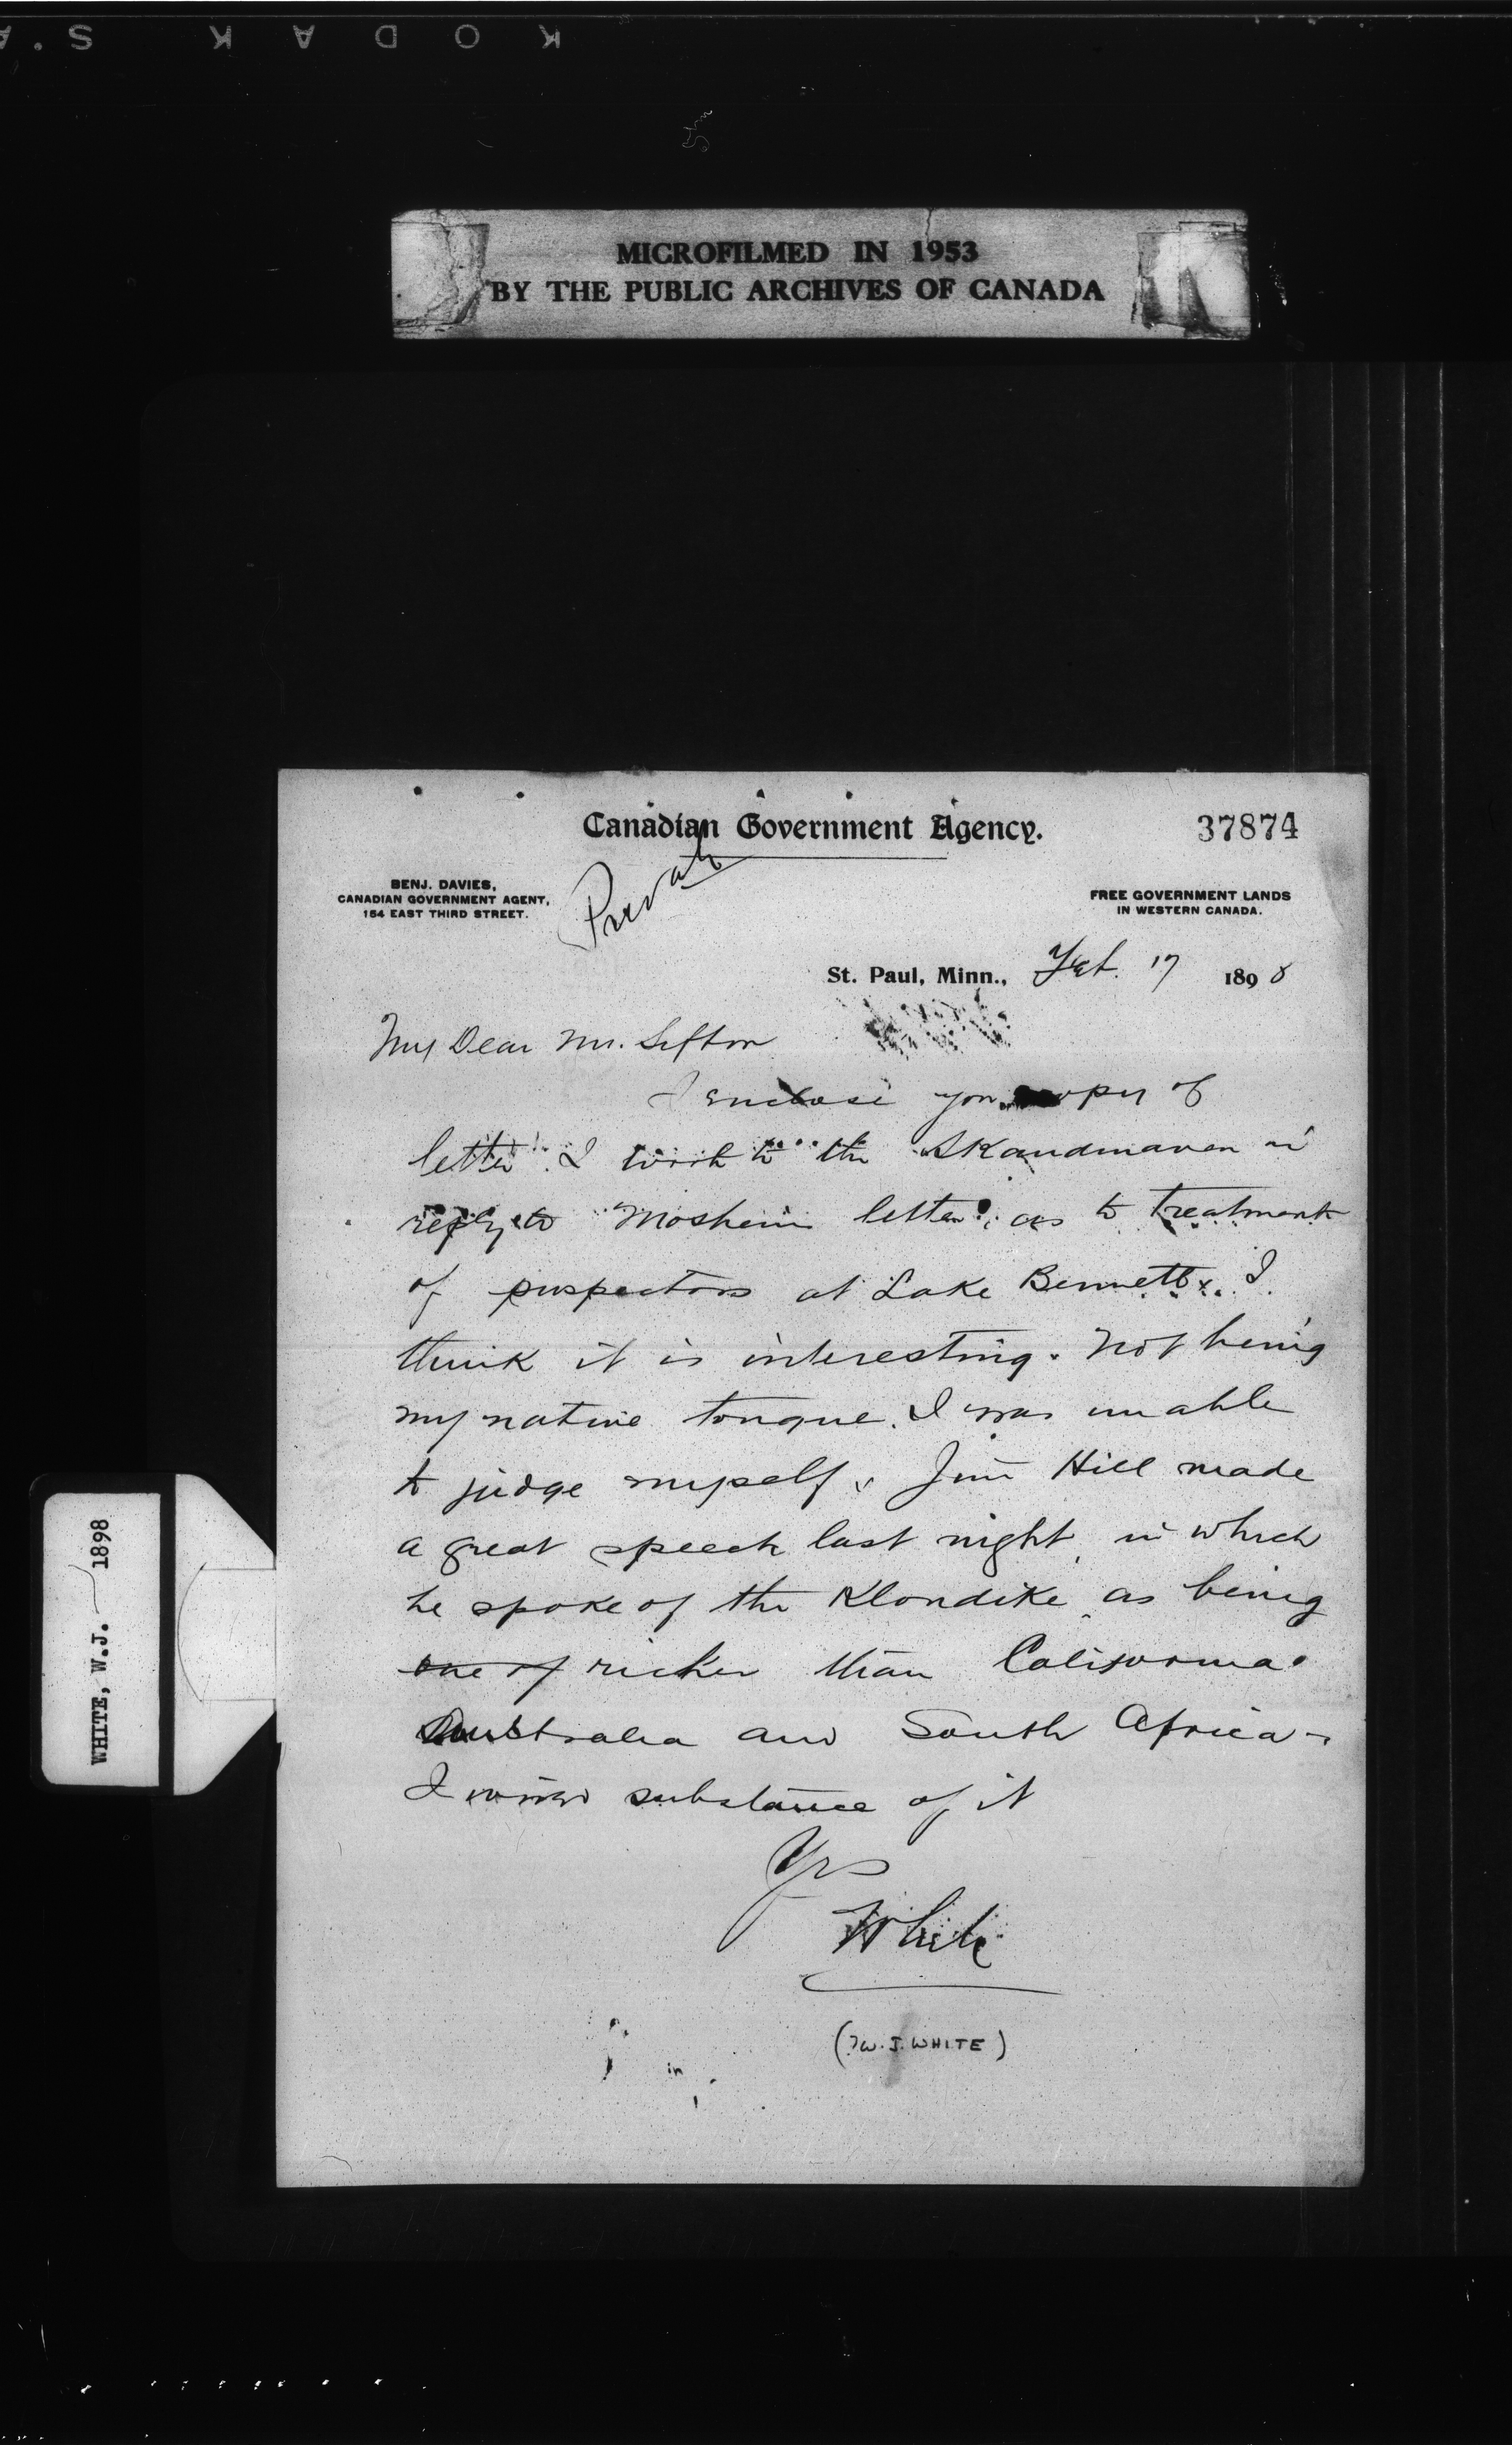 KODAK S.A
MICROFILMED IN 1953
BY THE PUBLIC ARCHIVES OF CANADA
Canadian Government Agency.
37874
BENJ. DAVIES,
CANADIAN GOVERNMENT AGENT,
154 EAST THIRD STREET.
Private
FREE GOVERNMENT LANDS
IN WESTERN CANADA.
St. Paul, Minn., Feb. 17 1898
My Dear Mr. Sifton
I enclose you copy of
letter I wrote to the Skandinaven in
reply to Mosheim letter, as to treatment
of prospectors at Lake Bennett. I
think it is interesting. Not being
my native tongue, I was unable
to judge myself. Jim Hill made
a great speech last night, in which
he spoke of the Klondike as being
one of richer than California
Australia and South Africa -
I wired substance of it
Yrs
White
(?W.J. WHITE)
WHITE, W.J. 1898